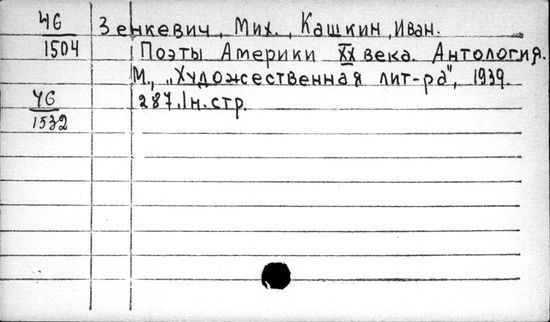 Ч6 Зенкевич, Мих., Кашкин, Иван.
1504 Поэты Америки XX века. Антология.
М., „Художественная лит-ра", 1939.
Ч6 287, 1н. стр.
1532